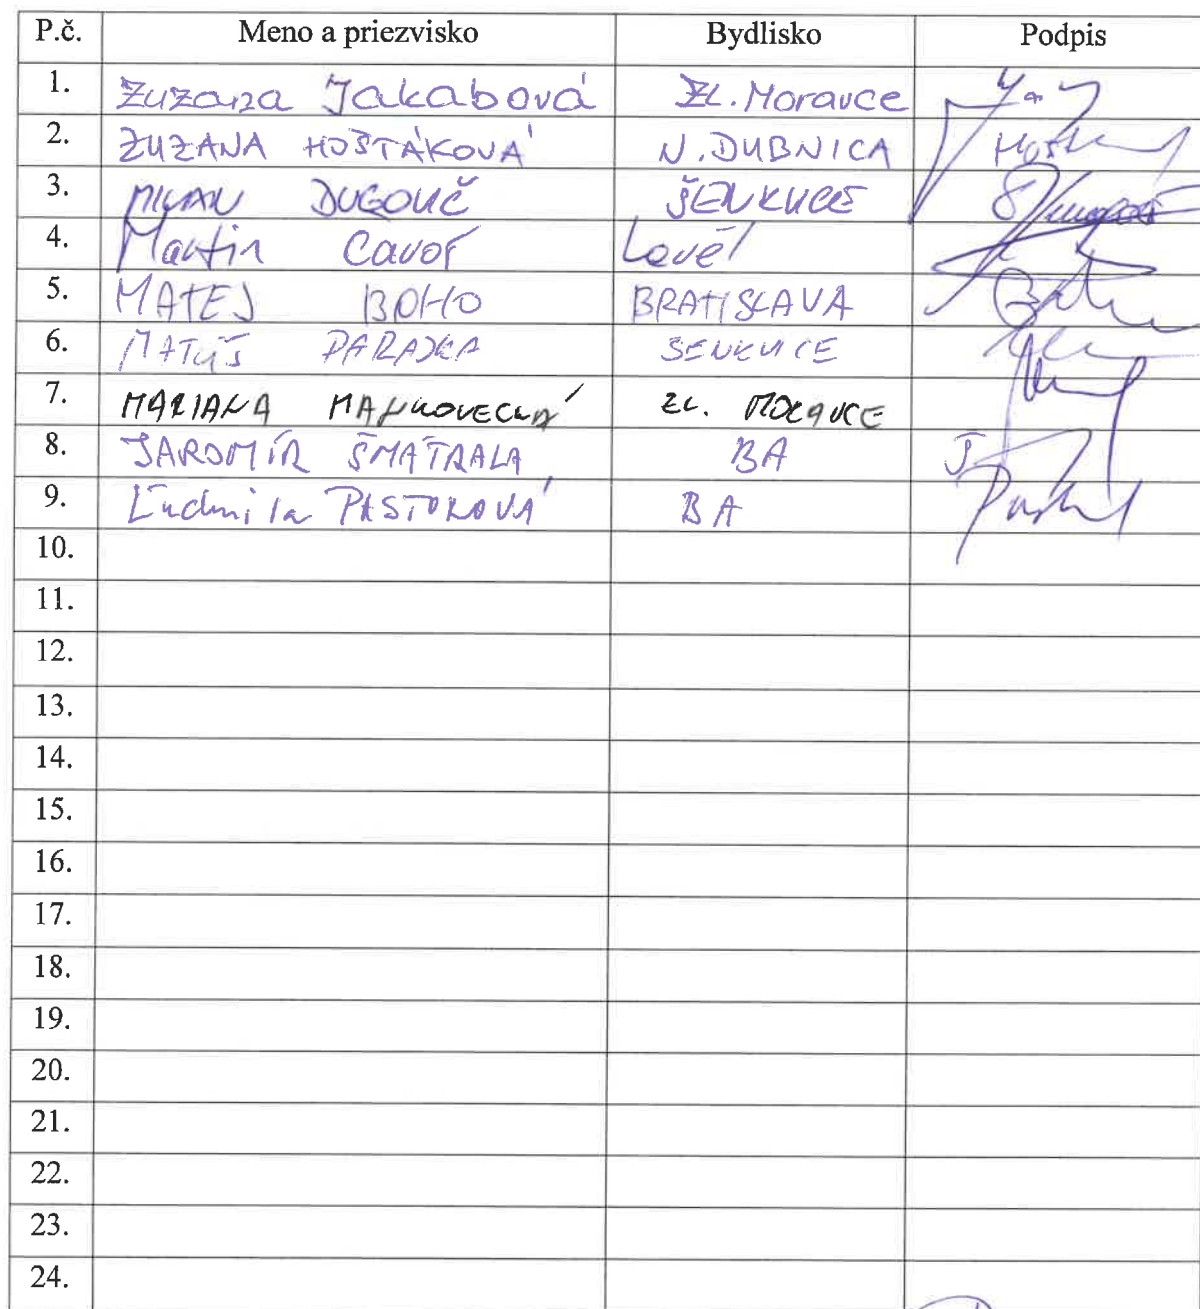 P.č. Meno a priezvisko Bydlisko Podpis
1. Zuzana Jakabová Zl. Moravce
2. ZUZANA HOŠTÁKOVÁ N. DUBNICA
3. MILAN DUGOVIČ ŠENKVICE
4. Martin Cavoř
5. MATEJ BOHO BRATISLAVA
6. MATÚŠ PARAJKA SENKVICE
7. MARIANA ZL. MORAVCE
8. JAROMÍR ŠMATRALA BA
9. Ľudmila PASTOROVÁ BA
10.
11.
12.
13.
14.
15.
16.
17.
18.
19.
20.
21.
22.
23.
24.